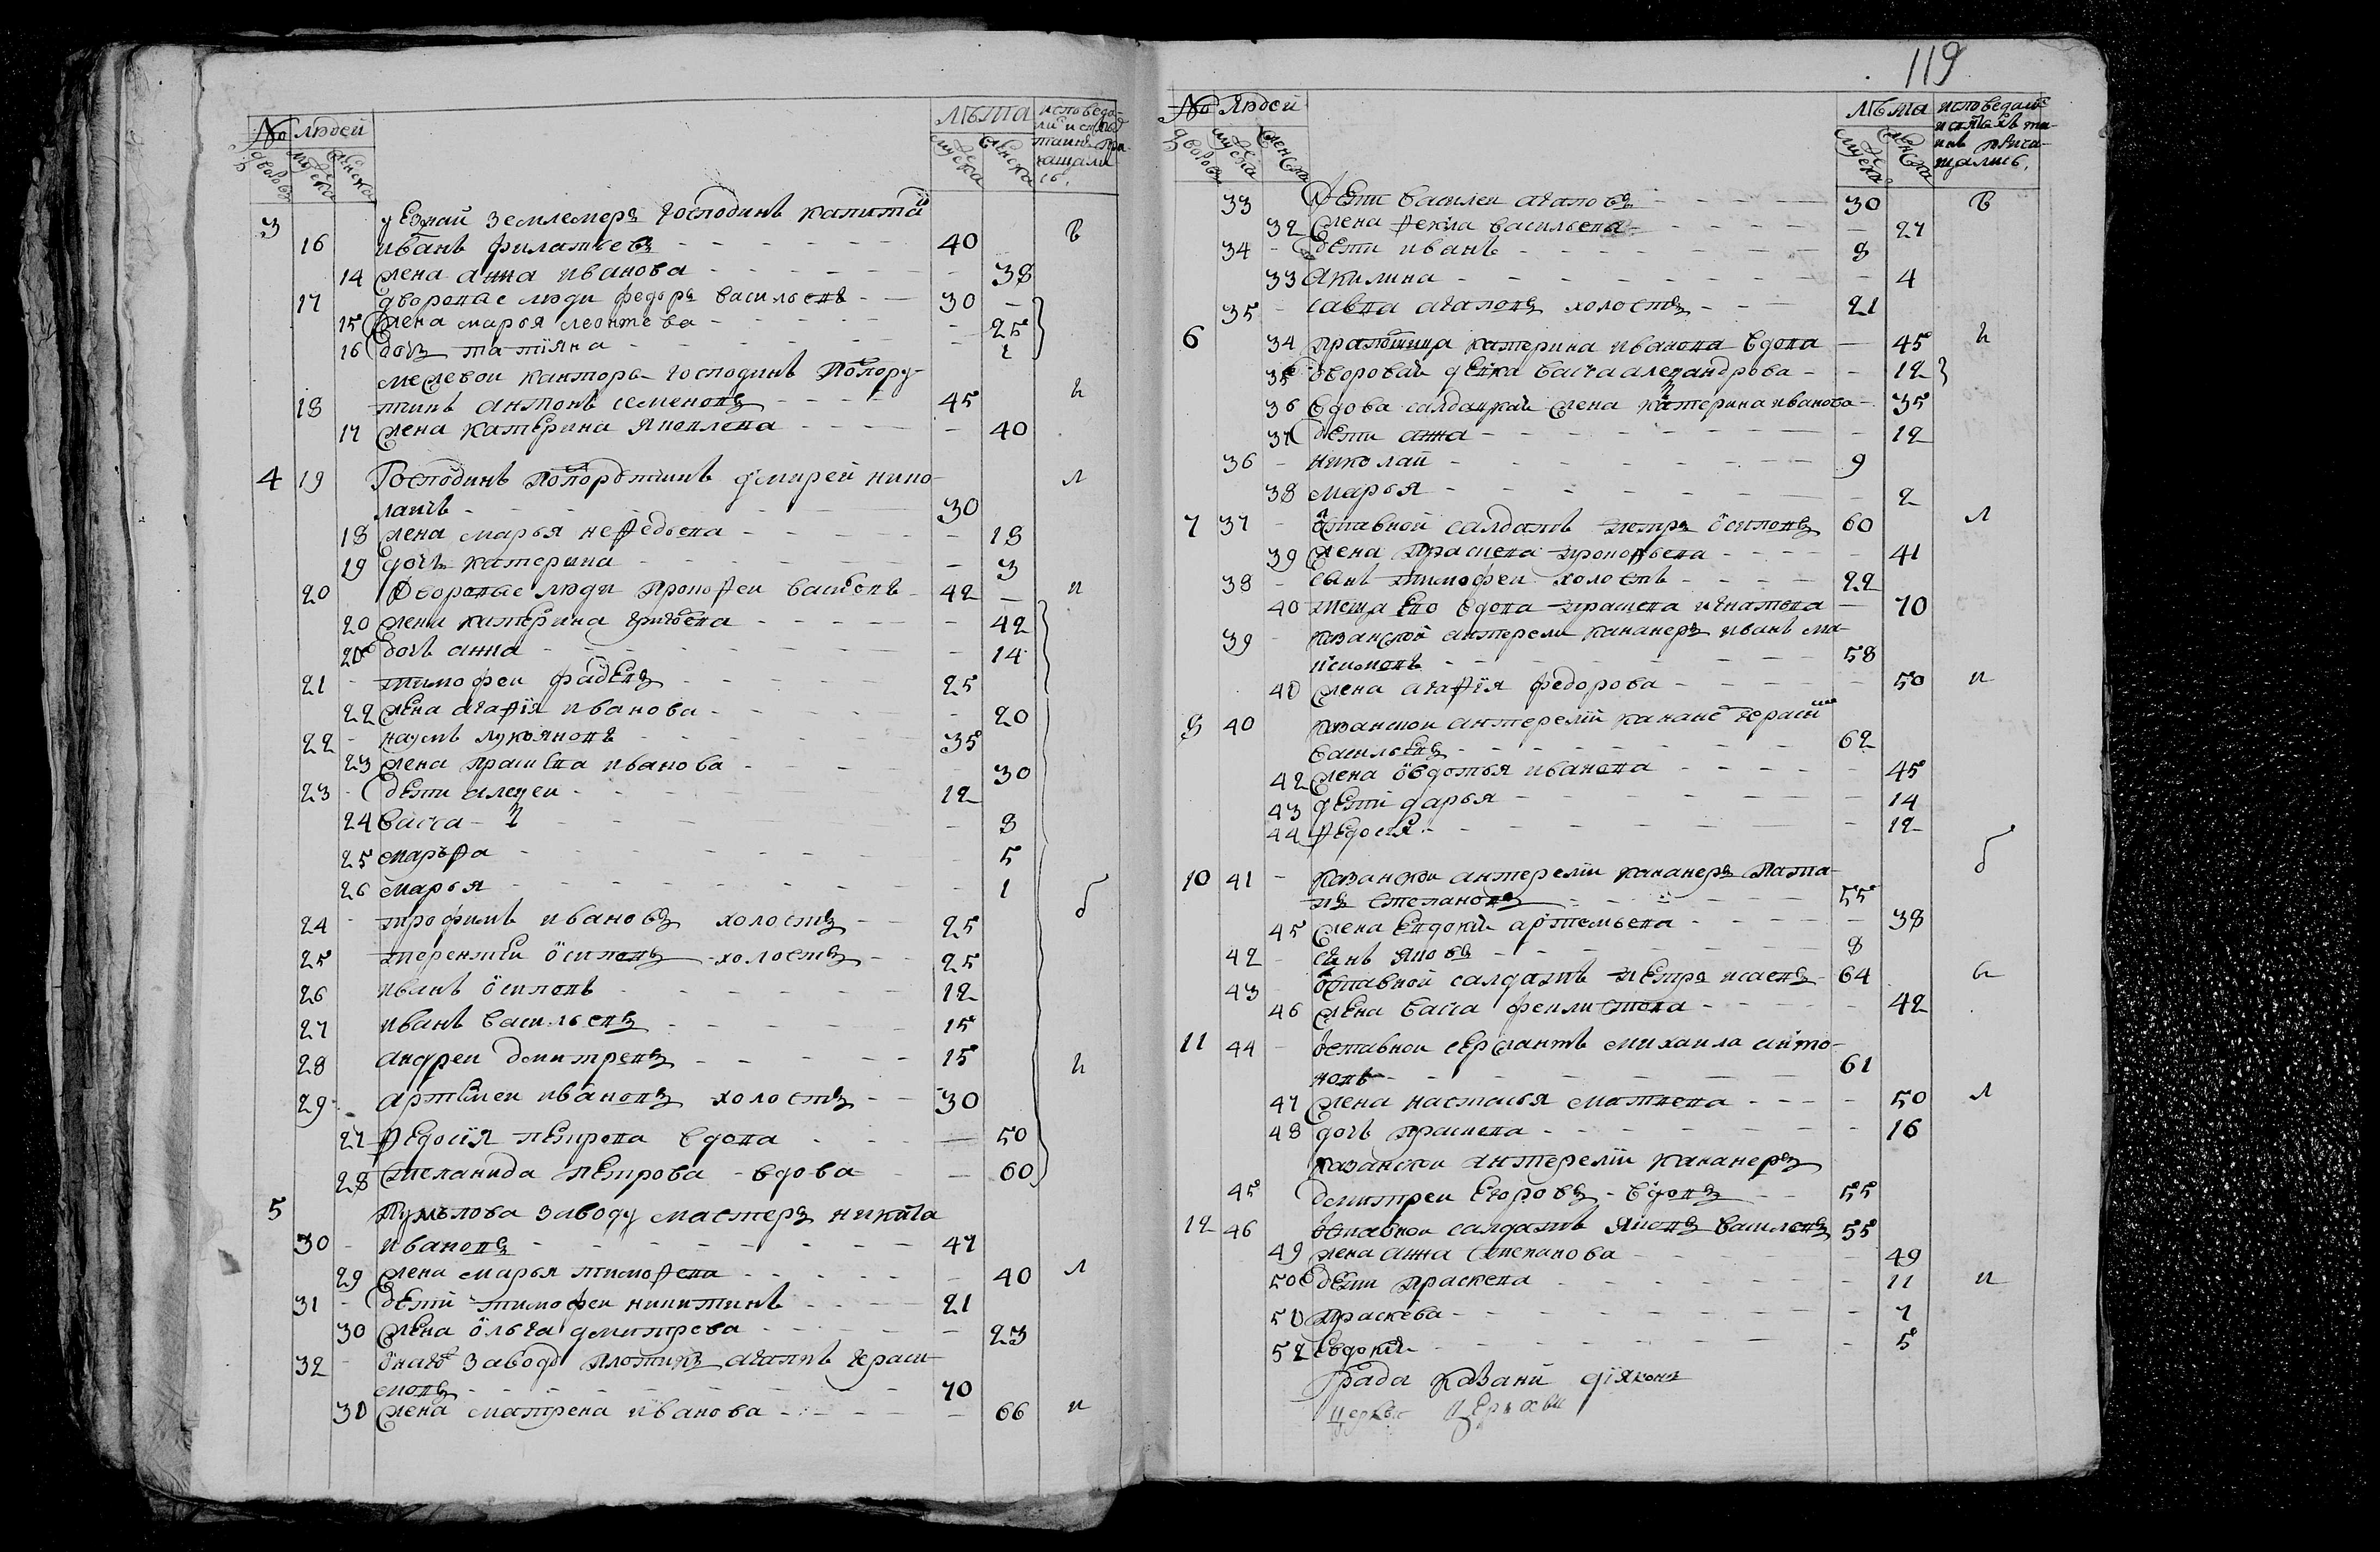 № людей лѣта исповеда-
ли и святых
таин при
чащали
сь.
дворовъ мужеска женска мужеска женска
3 уезнай землемеръ господинъ капитан
16 иванъ филатьевъ 40 в
14 жена анна иванова 38
17 дворовые люди федоръ васильевъ 30
15 жена марья леонтева 25
16 дочь татияна 2
межевои канторы господинъ подпору-
18 тчикъ антонъ семеновъ 45 и
17 жена катерина яковлева 40
4 19 Господинъ подпорутчикъ дмитрей нико-
лаивъ 30 л
18 жена марья нефедьева 18
19 дочь катерина 3
20 дворовые люди прокофеи васильевъ 42 и
20 жена катерина григорева 42
21 дочь анна 14
21 тимофеи фадеевъ 25
22 жена агафія иванова 20
22 наумъ лукояновъ 35
23 жена прасковя иванова 30
23 дети алеѯеи 12
24 васса 8
25 марѳа 5
26 марья 1
24 трофимъ ивановъ холостъ 25 б
25 терентеи осиповъ холостъ 25
26 иванъ осиповъ 12
27 иванъ васильевъ 15
28 андреи дмитревъ 15 и
29 артемеи ивановъ холостъ 30
27 ѳедосія петрова вдова 50
28 степанида петрова вдова 60
5 заводу мастеръ никита
30 ивановъ 47
29 жена марья тимофева 40 л
31 дети тимофеи никитинъ 21
30 жена ольга дмитрева 23
32 онаго заводу плотник агапъ гераси-
мовъ 70
31 жена матрена иванова 66 и
119
№ людей лѣта исповедалис
и святых таи
нъ прича-
щались.
дворовъ мужеска женска мужеска женска
33 Дети василеи агаповъ 30 в
32 жена ѳекла васильева 27
34 дети иванъ 8
33 акилина 4
35 савва агаповъ холостъ 21
6 34 катерина иванова вдова 45 и
35 дворовая девка васса алеѯандрова 12
36 вдова салдацкая жена катерина иванова 35
37 дети анна 12
36 николай 9
38 марья 2
7 37 отставной салдатъ петръ осиповъ 60 л
39 жена прасковя прокофьева 41
38 сынъ тимофеи холостъ 22
40 теща ево вдова прасковя игнатева 70
39 казанской антерели кананеръ иванъ ма-
ѯимовъ 58
41 жена агафія федорова 50 и
9 40 казанскои антерелии кананеръ герасим
васильевъ 62
42 жена овдотья иванова 45
43 дети дарья 14
44 ѳедосія 12
10 41 казанскои антерелии кананеръ пота-
пъ степановъ 55 б
45 жена евдокия артемьева 38
42 сынъ яковъ 8
43 отставной салдатъ петръ исаевъ 64 в
46 жена васса феклистова 42
11 44 оставнои сержантъ михаила анто-
новъ 61
47 жена настасья матвева 50 л
48 дочь прасковя 16
казанскои антерелии кананеръ
45 дмитреи егоровъ вдовъ 55
12 46 оставнои салдатъ яковъ васильевъ 55
49 жена анна степанова 49
50 дети прасковя 11 и
51 праскева 7
52 евдокия 5
града казани діякони
церкви церкви